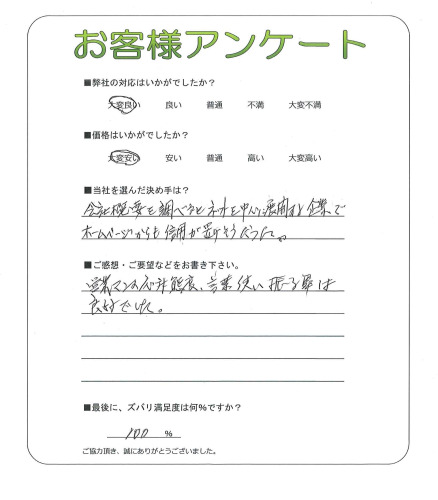 お客様アンケート
■弊社の対応はいかがでしたか?
大変良い 良い 普通 不満 大変不満
■価格はいかがでしたか?
大変安い 安い 普通 高い 大変高い
■当社を選んだ決め手は?
会社概要を調べるとネットを中心に展開する企業で
ホームページからも信用が置けそうだった。
■ご感想・ご要望などをお書き下さい。
営業マンの 態度、言葉使い 振る舞は
良好でした。
■最後に、ズバリ満足度は何%ですか?
100 %
ご協力頂き、誠にありがとうございました。